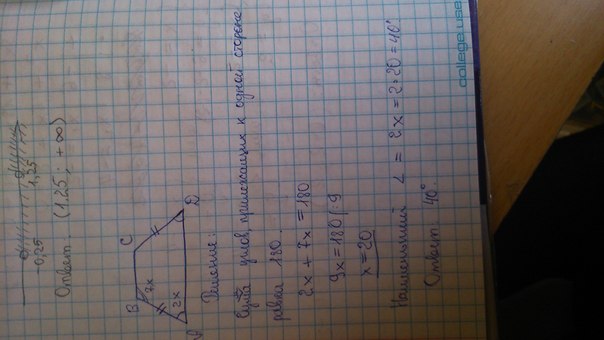 -0,25 1,25
Ответ: (1.25; +∞)
B C
7x
2x
A D
Решение:
Сума углов, прилежащих к одной стороне
равна 180.
2x + 7x = 180
9x = 180 | : 9
x = 20
Наименьший ∠ = 2x = 2·20 = 40°
Ответ: 40°.
college.use